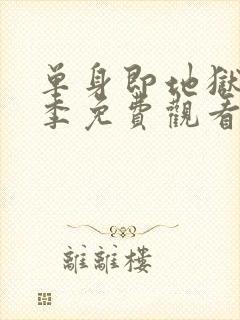 單身即地獄
季免費觀看
離離樓